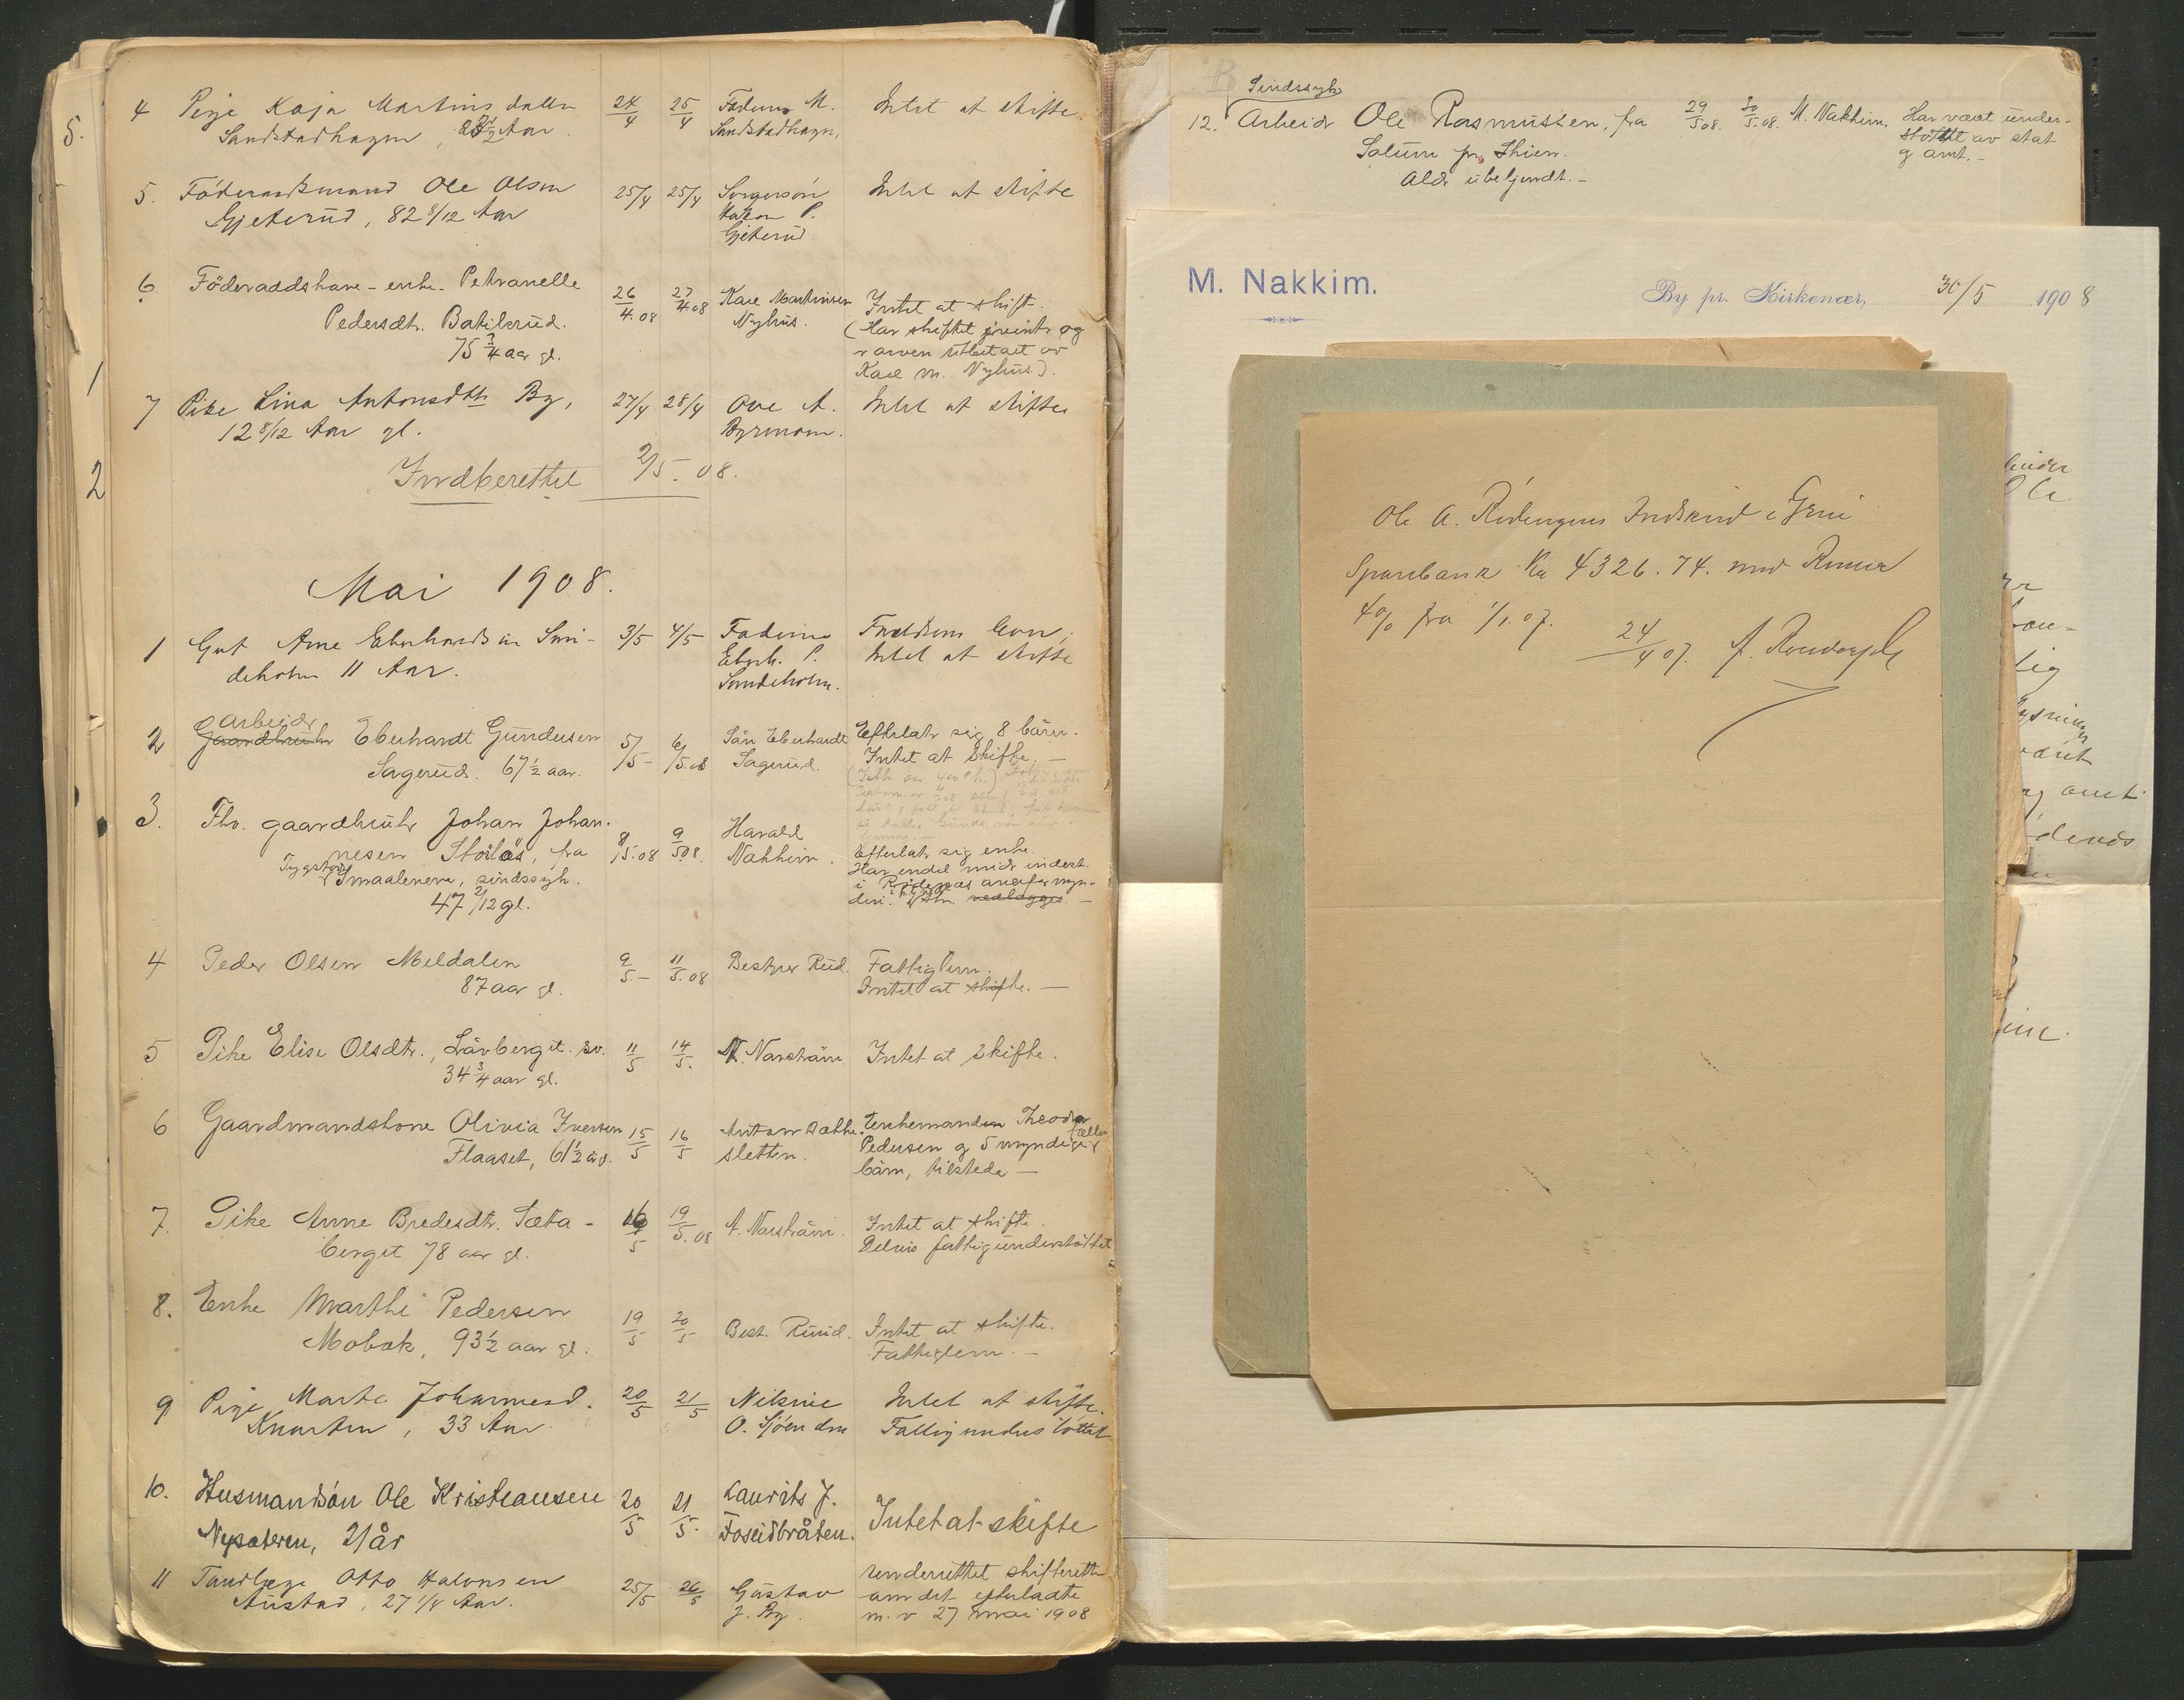 5.
1
2
4 Pige Kaja Martinsdatter 24/4 25/4 Faderen M. Intet at skifte.
Sandstadhagen, Aar. Sandstadhagen.
5. Föderaadsmand Ole Olsen 25/4 25/4 Intet at skifte
Gjeterud, 82 8/12 Aar Hakon P.
Gjeterud
6. Föderaadshave-enke Petranelle 26/4.08 27/4.08 Karl Martinsen Intet at skift.
Pedersdt. Batilsrud. Nyhus. (Har skiftet og
75 3/4 aar gl. arven utbetalt av
Karl M. Nyhus).
7 Pike Lina Antonsdtr By, 27/4 28/4 Ove A. Intet at skifte
12 8/12 Aar gl. Byrmoen.
Indberettet 2/5. 08.
Mai 1908.
1 Gut Arne Eberhardsøn Smi- 3/5 4/5 Faderen
deholm 11 Aar. Eberh. P. Intet at skifte
Smideholm.
2 Arbeider
Gaardbruker Eberhardt Gundersen 5/5 6/5.08 Sön Eberhardt Efterlater sig 8 börn.
Sagerud. 67 1/2 aar. Sagerud. Intet at skifte. —
3. Fhv. gaardbruker Johan Johan- 8/5.08 9/5.08 Harald
nesen fra Nakkim. Efterlater sig enke.
Smaalenene, sindssyk. Har endel midler indest.
47 2/12 gl. i
vedlægges. —
4 Peder Olsen Meldalen 9/5 — 11/5.08 Bestyrer Rud. Fattiglem.
87 aar gl. Intet at skifte. —
5 Pike Elise Olsdtr., Lövberget. 11/5 14/5. Intet at skifte.
34 3/4 aar gl.
6 Gaardmandskone Olivia Iversen 15/5 16/5 Anton Enkemanden Theodor
Flaaset, 61 1/2 aar. sletten. Pedersen og 5 myndige fælles
börn, tilstede —
7. Pike Anne Bredesdtr. Sæta- 16/5 19/5.08 Intet at skifte.
berget 78 aar gl. Delvis fattigunderstöttet
8. Enke Marthe Pedersen 19/5 20/5 Best. Ruud. Intet at skifte.
Mobæk, 93 1/2 aar gl. Fattiglem. —
9 Pige Marte Johannesd. 20/5 21/5 Nilsine Intet at skifte.
33 Aar O. Sjöenden Fattigunderstöttet
10. Husmandsön Ole Kristiansen 20/5 21/5. Laurits J. Intet at skifte
Nysæteren, 21 år Foseidbråten.
11 Tandlæge Otto Hakonsen 25/5 26/5 Gustav Underrettet skifteretten
Austad, 27 1/4 Aar. J. By om det efterladte
m. v 27 mai 1908
Sindssyk
12. Arbeider Ole Rasmussen, fra 29/5.08. 30/5.08. M. Nakkim. Har vært under-
Solum pr. Skien. støttet av stat
Alder ubekjendt. — og amt. —
M. Nakkim.
By pr. Kirkenær, 30/5 1908
Ole A. Rödengens Indskud i Grue
Sparebank Kr 4326.74. med Renter
4% fra 1/1.07.
24/4 07.